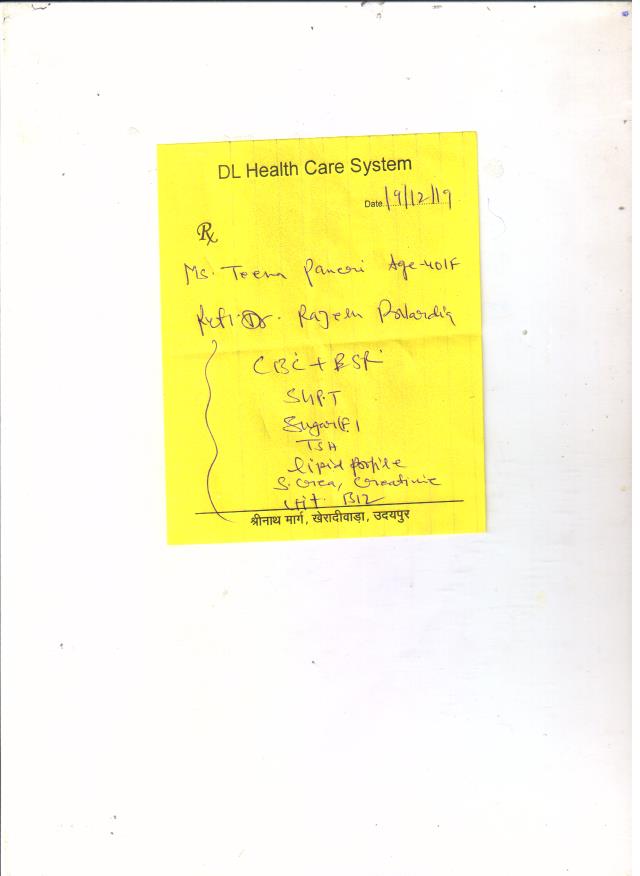 DL Health Care System
Date 19/12/19
Rx
Ms. Teena Paneri Age-40/F
Ref: Dr. Rajesh
CBC + ESR
SGPT
Sugar(F)
TSH
lipid profile
S. Urea, Creatinie
Vit. B12
श्रीनाथ मार्ग, खेरादीवाड़ा, उदयपुर